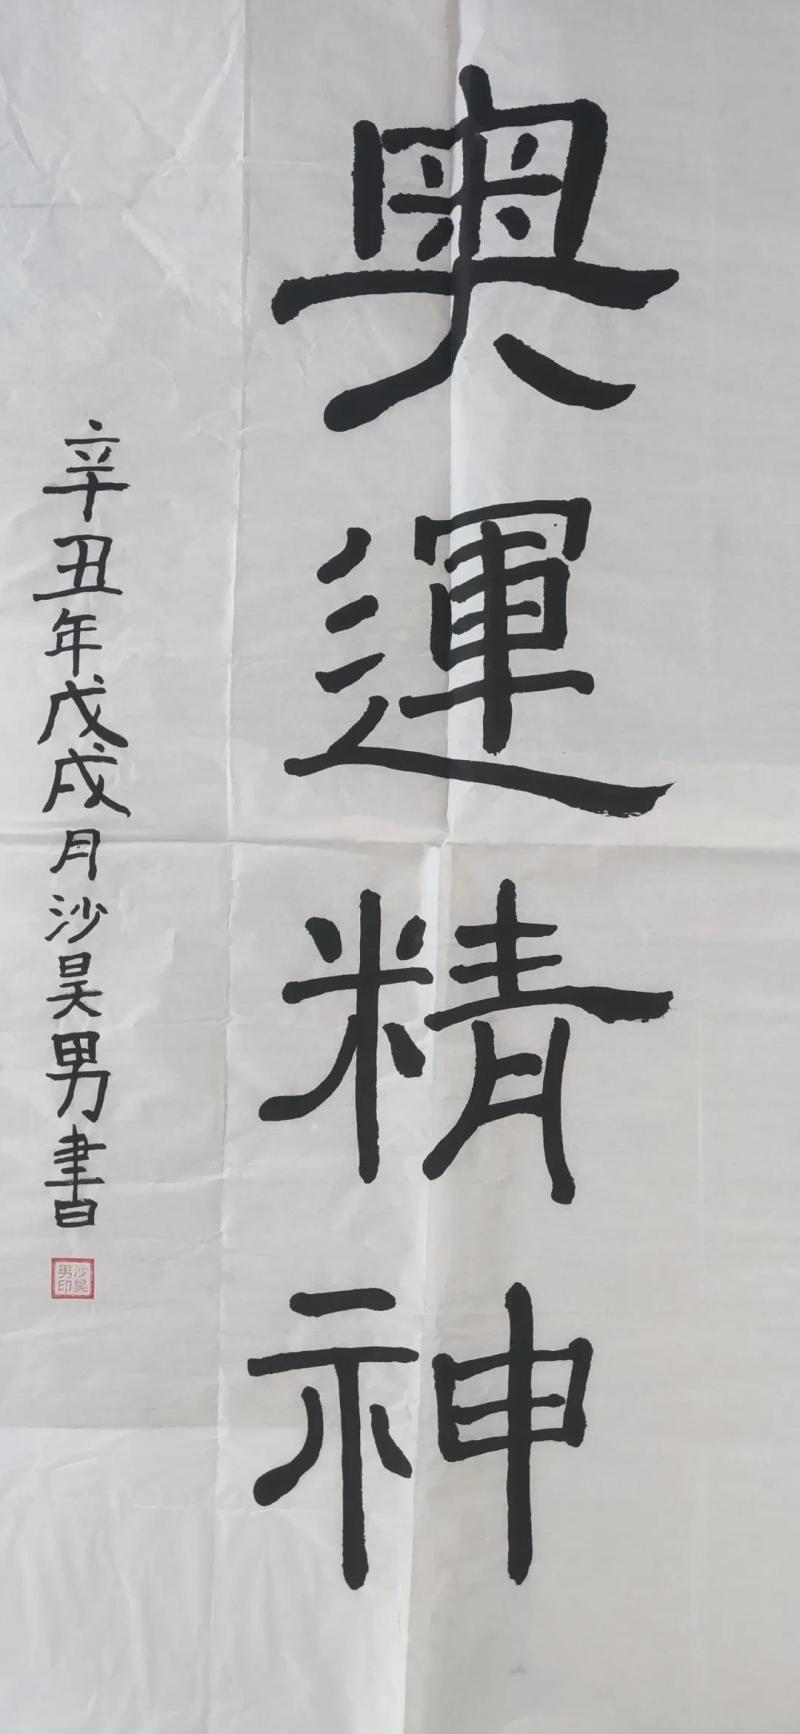 奥運精神
辛丑年戊戌月沙昊男書
沙昊
男印